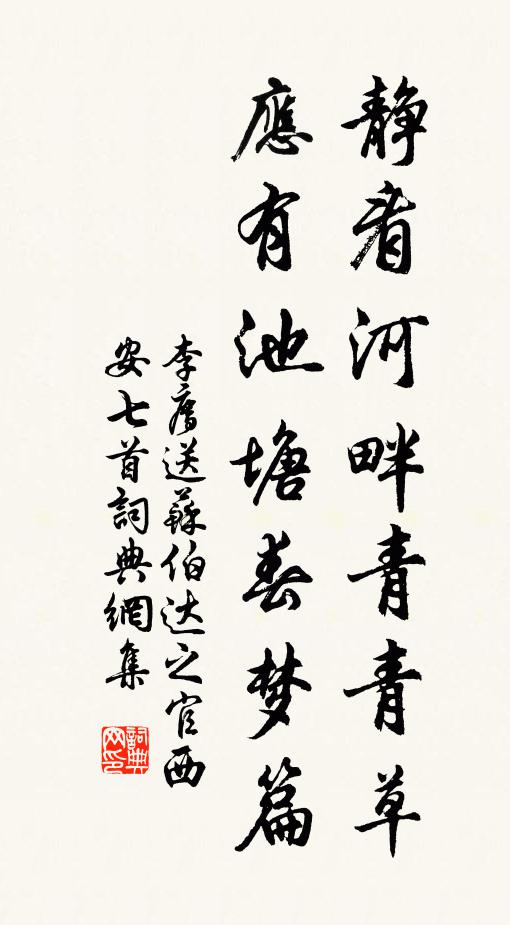 静看河畔青青草
應有池塘春梦篇
李廌送蘇伯达之官西
安七首詞典網集
詞典
网印